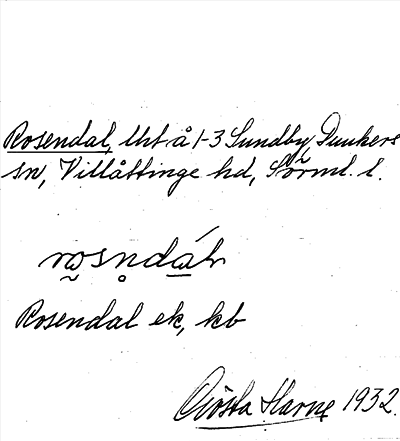 Rosendal, lht å 1-3 Sundby, Dunkers
sn, Villåttinge hd, Sörml. l.
rosṇdál
Rosendal ek, kb
Gösta Harne 1932.